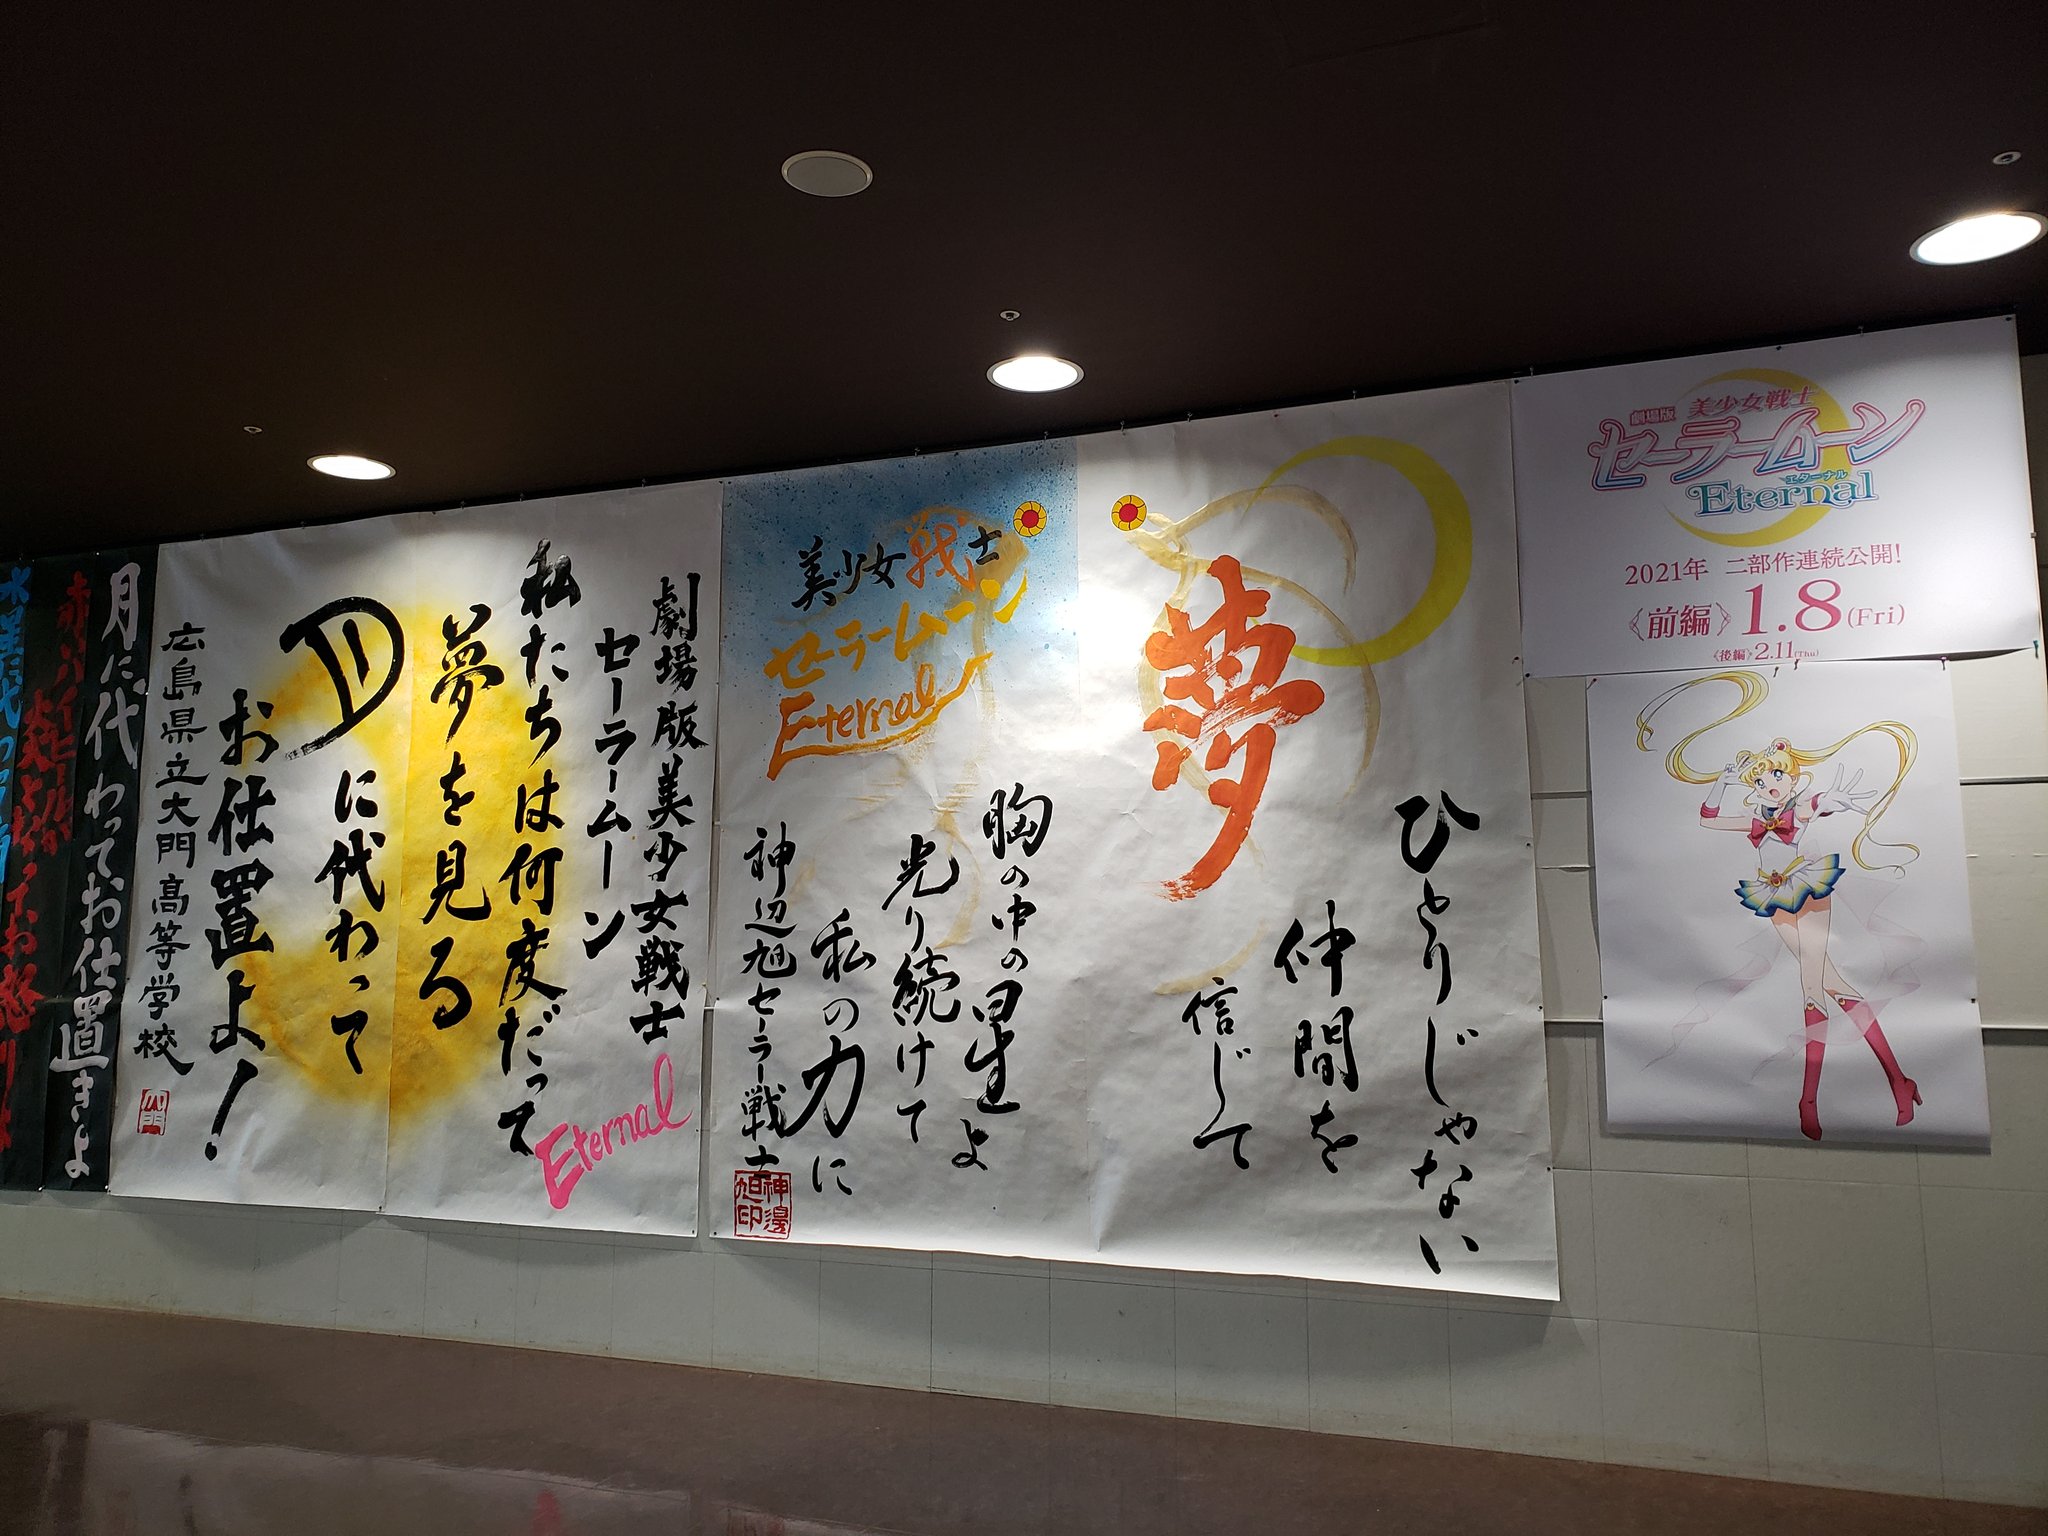 劇場版
美少女戦士
セーラームーン
エターナル
Eternal
2021年 二部作連続公開!
《前編》1.8(Fri)
《後編》2.11(Thu)
夢
ひとりじゃない
仲間を
信じて
美少女戦士
セーラームーン
Eternal
胸の中の星よ
光り続けて
私の力に
神辺旭セーラー戦士
神邊
旭印
劇場版美少女戦士
セーラームーン
Eternal
私たちは何度だって
夢を見る
月に代わって
お仕置よ!
広島県立大門高等学校
大門
月に代わっておお仕置きよ